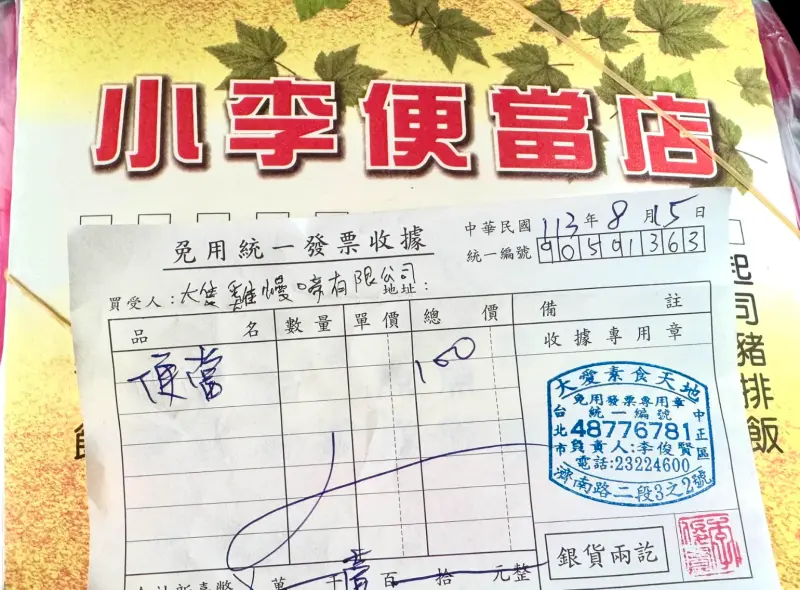 小李便當店
起司豬排飯
免用統一發票收據
中華民國113年8月15日
統一編號 90591363
買受人:大隻雞慢嗦有限公司
地址:
品名 數量 單價 總價 備註
便當 100
收據專用章
大愛素食天地
免用發票專用章
統一編號
台北市 48776781 中正區
負責人:李俊賢
電話:23224600
濟南路二段3之2號
銀貨兩訖
萬 千 壹百 拾 元整